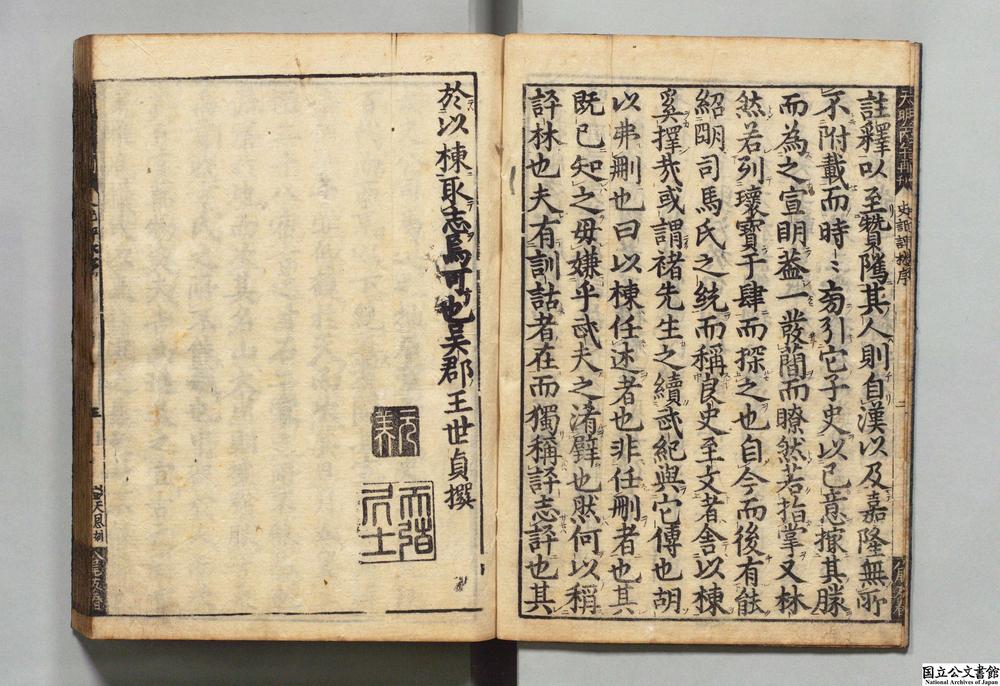 註釋以至贊隲其人則自漢以及嘉隆無所
不附載而時〻旁引它子史以己意撮其勝
而為之宣明葢一發簡而瞭然若指掌又林
然若列瓌寶于肆而探之也自今而後有能
紹明司馬氏之統而稱良史至文者舍以棟
奚擇哉或謂褚先生之續武紀與它傳也胡
以弗刪也曰以棟任述者也非任刪者也其
既已知之毋嫌乎武夫之淆璧也然何以稱
評林也夫有訓詁者在而獨稱評志評也其
於以棟取志焉可也吳郡王世貞撰
元美
天弢居士
史記評林序
二
国立公文書館
National Archives of Japan